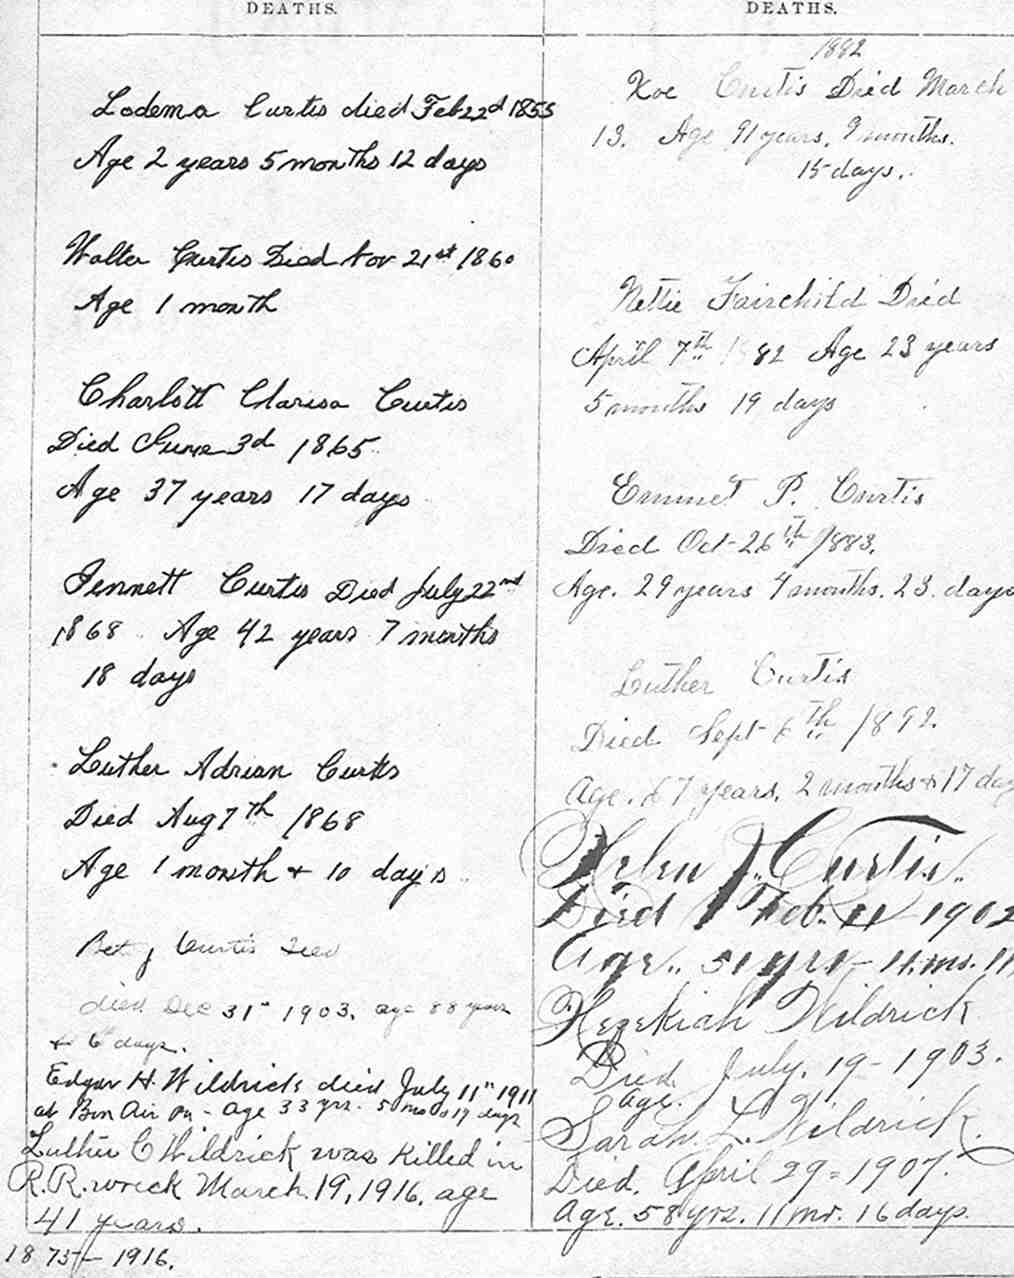 DEATHS.
Lodema Curtis died Feb 22d 1855
Age 2 years 5 months 12 days
Walter Curtis Died Nov 21st 1860
Age 1 month
Charlott Clarisa Curtis
Died June 3d 1865
Age 37 years 17 days
Jennett Curtis Died July 22nd
1868 Age 42 years 7 months
18 days
Luther Adrian Curtis
Died Aug 7th 1868
Age 1 month + 10 days
Curtis
died Dec 31st 1903, age 88 years
+ 6 days.
Edgar H. Wildrick died July 11th 1911
at Bon Air Pa - age 33 yrs. 5 mo 17 days
Luther C Wildrick was killed in
R.R. wreck March 19, 1916, age
41 years.
1875 - 1916.
DEATHS.
1882
Zoe Curtis Died March
13. Age 91 years, 9 months.
15 days.
Nettie Fairchild Died
April 7th 1882 Age 23 years
5 months 19 days
Emmet P. Curtis
Died Oct-26th 1883.
Age. 29 years 4 months. 23. days
Luther Curtis
Died Sept- 6th 1892.
Age. 67 years, 2 months + 17
Helen J. Curtis.
Died Feb. 1902
Age.. 51 yrs - 11. ms. 11
Hezekiah Wildrick
Died July. 19 - 1903.
age.
Sarah. L. Wildrick.
Died. April 29 - 1907.
Age. 58 yrs. 11 mo. 16 days.